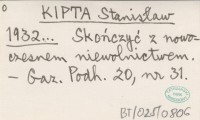 KIPTA Stanisław
1932... Skończyć z nowo-
czesnem niewolnictwem.
– Gaz. Podh. 20, nr 31.
BT/025/0806